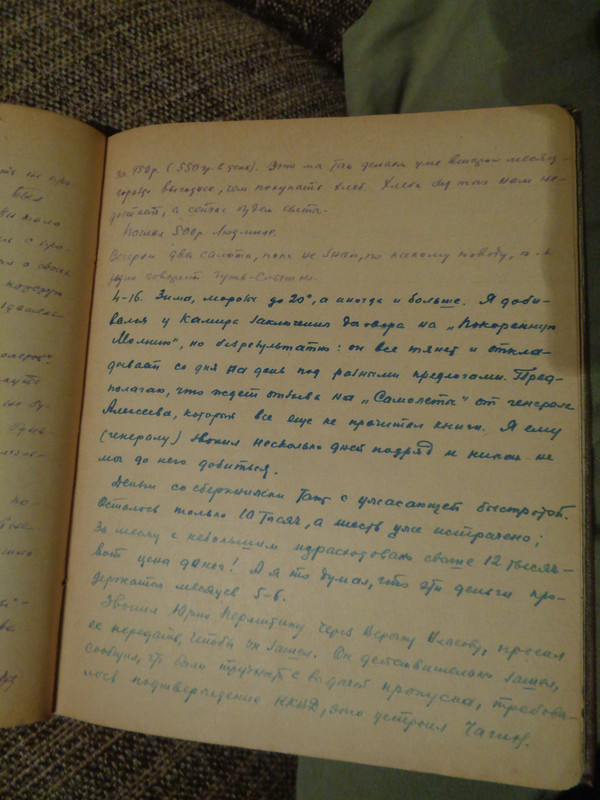 за 450р. (550гр. в день). Это мы так делаем уже второй месяц —
гораздо выгоднее, чем покупать хлеб. Хлеба без того нам не-
достает, а сейчас будем сыты.
Послал 500р. Людмиле.
Вечером два салюта, пока не знаю, по какому поводу, но
радио говорит
4–16. Зима, морозы до 20°, а иногда и больше. Я доби-
вался у Камира заключения договора на „Покоренную
Молнию", но безрезультатно: он все тянет и откла-
дывает со дня на день под разными предлогами. Пред-
полагаю, что ждет отзыва на „Самолеты" от генерала
Алексеева, который все еще не прочитал книги. Я ему
(генералу) звонил несколько дней подряд и никак не
мог до него добиться.
Деньги со сберкнижки тают с ужасающей быстротой.
Осталось только 10 тысяч, а шесть уже истрачено;
за месяц с небольшим израсходовано свыше 12 тысяч —
вот цена денег! А я-то думал, что эти деньги про-
держатся месяцев 5–6.
Звонил Юрию Перлитину через Верочку Власову, просил
ее передать, чтобы он зашел. Он действительно зашел,
сообщил, что были трудности с выдачей пропуска, требова-
лось подтверждение НКВД, это устроил Чагин.
ть не
был